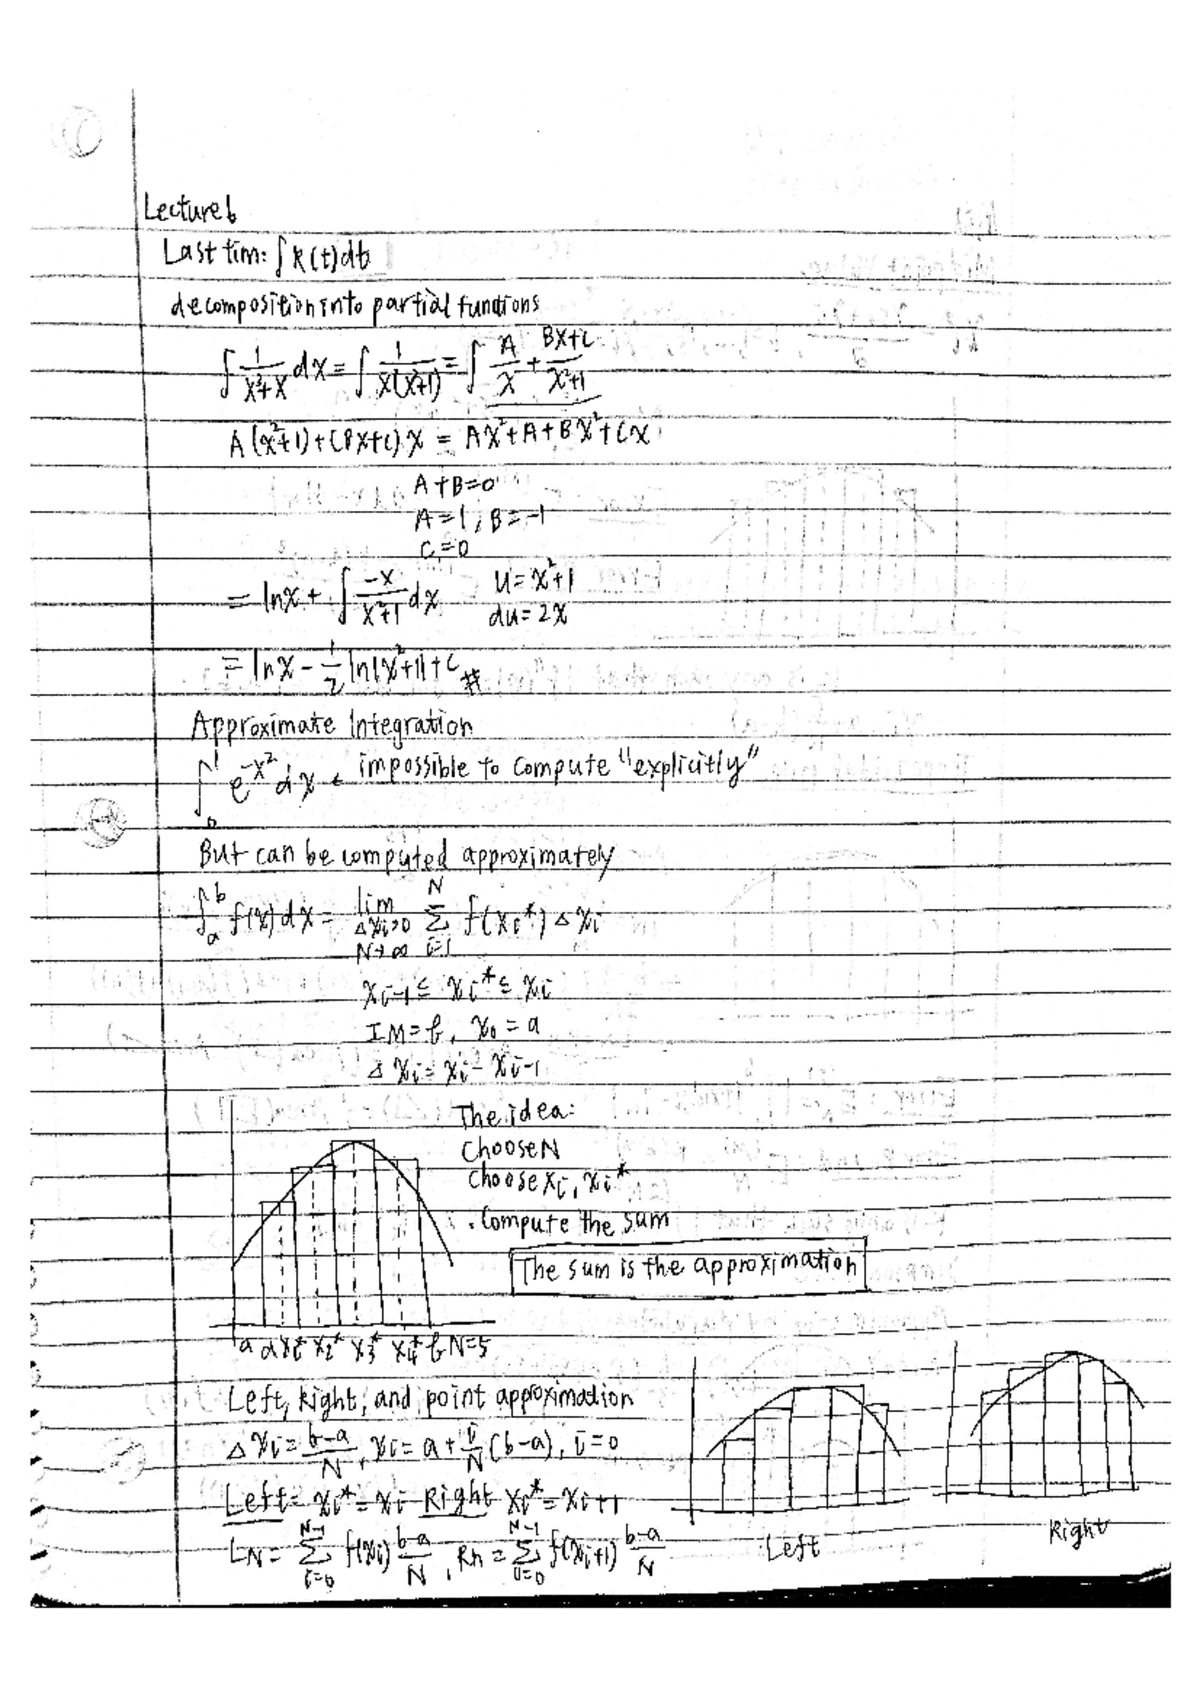 Lecture 6
Last tim: ∫R(t)dt
decomposition into partial functions
∫ 1/(x³+x) dx = ∫ 1/(x(x²+1)) = ∫ A/x + (Bx+C)/(x²+1)
A(x²+1)+(Bx+c)x = Ax²+A+Bx²+Cx
A+B=0
A=1, B=-1
C=0
= lnx + ∫ -x/(x²+1) dx   u=x²+1
du=2x
= lnx - 1/2 ln|x²+1|+C #
Approximate Integration
∫₀¹ e^(-x²) dx ← impossible to compute "explicitly"
But can be computed approximately
∫ₐᵇ f(x)dx = lim Δxi→0 N→∞ Σ i=1 N f(xi*)Δxi
xi-1 ≤ xi* ≤ xi
= b, x₀ = a
Δxi = xi - xi-1
The idea:
Choose N
choose xi, xi*
. Compute the sum
The sum is the approximation
a x2* x3* x4* b N=5
Left, Right, and point approximation
Δxi = (b-a)/N, xi = a + i/N (b-a), i=0
Left = xi* = xi Right xi* = xi+1
LN = Σ i=0 N-1 f(xi) (b-a)/N, Rn = Σ i=0 N-1 f(xi+1) (b-a)/N
Left
Right